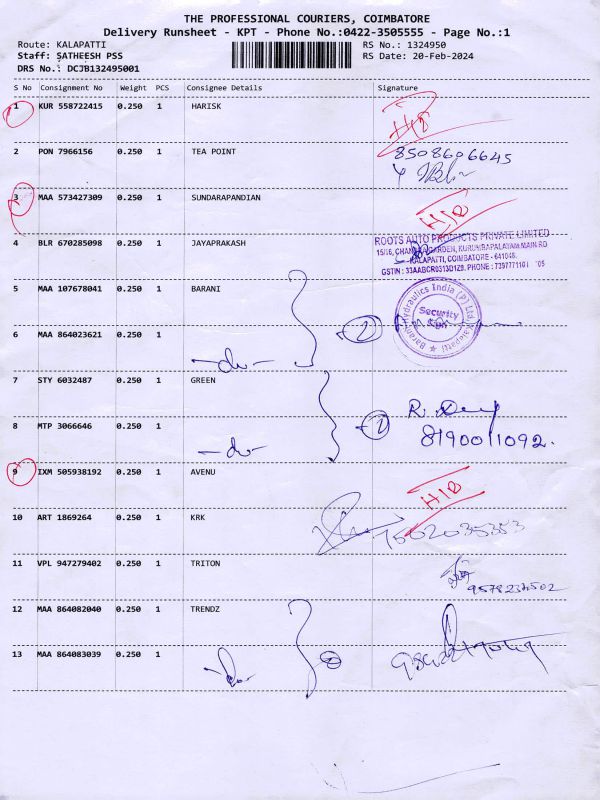 THE PROFESSIONAL COURIERS, COIMBATORE
Delivery Runsheet - KPT - Phone No.:0422-3505555 - Page No.:1
Route: KALAPATTI
RS No.: 1324950
Staff: SATHEESH PSS
RS Date: 20-Feb-2024
DRS No.: DCJB132495001
S No Consignment No Weight PCS Consignee Details Signature
1 KUR 558722415 0.250 1 HARISK
2 PON 7966156 0.250 1 TEA POINT 8508606645
3 MAA 573427309 0.250 1 SUNDARAPANDIAN
4 BLR 670285098 0.250 1 JAYAPRAKASH
ROOTS AUTO PRODUCTS PRIVATE LIMITED
KALAPATTI, COIMBATORE - 641048.
5 MAA 107678041 0.250 1 BARANI
Barani Hydraulics India (P) Ltd. Kalapatti
Security Sign
6 MAA 864023621 0.250 1 -do- 2
7 STY 6032487 0.250 1 GREEN
8 MTP 3066646 0.250 1 -do- 2 8190011092.
9 IXM 505938192 0.250 1 AVENU
10 ART 1869264 0.250 1 KRK
11 VPL 947279402 0.250 1 TRITON
12 MAA 864082040 0.250 1 TRENDZ
13 MAA 864083039 0.250 1 -do-